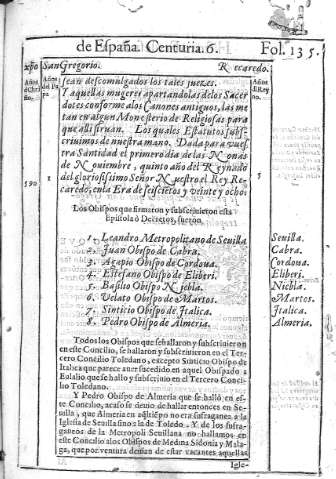 de España. Centuria. 6. Fol. 135.
xpo San Gregorio. Recaredo.
Años de Chri sto. Años del Pa pa Años del Rey no.
sean descomulgados los tales juezes.
Y aquellas mugeres apartandolas de los Sacer
dotes conforme a los Canones antiguos, las me
tan en algun Monesterio de Religiosas para
que alli siruan. Los quales Estatutos subs-
criuimos de nuestra mano. Dada para vues
tra Santidad el primero dia de las Nonas
de Nouiembre, quinto año del Reynado
del gloriosissimo Señor Nuestro el Rey Re-
caredo, en la Era de seiscietos y veinte y ocho.
590 1 5
Los Obispos que firmaron y subscriuieron esta
Epistola o Decretos, fueron.
1. Leandro Metropolitano de Seuilla Seuilla.
2. Juan Obispo de Cabra. Cabra.
3. Agapio Obispo de Cordoua. Cordoua.
4. Estefano Obispo de Eliberi. Eliberi.
5. Basilio Obispo Niebla. Niebla.
6. Velato Obispo de Martos. Martos.
7. Sinticio Obispo de Italica. Italica.
8. Pedro Obispo de Almeria. Almeria.
Todos los Obispos que se hallaron y subscriuieron
en este Concilio, se hallaron y subscriuieron en el Ter-
cero Concilio Toledano, excepto Sinticio Obispo de
Italica que parece auer sucedido en aquel Obispado a
Eulalio que se hallo y subscriuio en el Tercero Conci-
lio Toledano.
Y Pedro Obispo de Almeria que se halló en es-
te Concilio, acaso se deuio de hallar entonces en Se-
uilla, que Almeria en aql tiepo no era sufraganea a la
Iglesia de Seuilla sino a la de Toledo. Y de los sufra-
ganeos de la Metropoli Seuillana no hallamos en
este Concilio a los Obispos de Medina Sidonia y Mala-
ga, que por ventura deuian de estar vacantes aquellas
Igle-